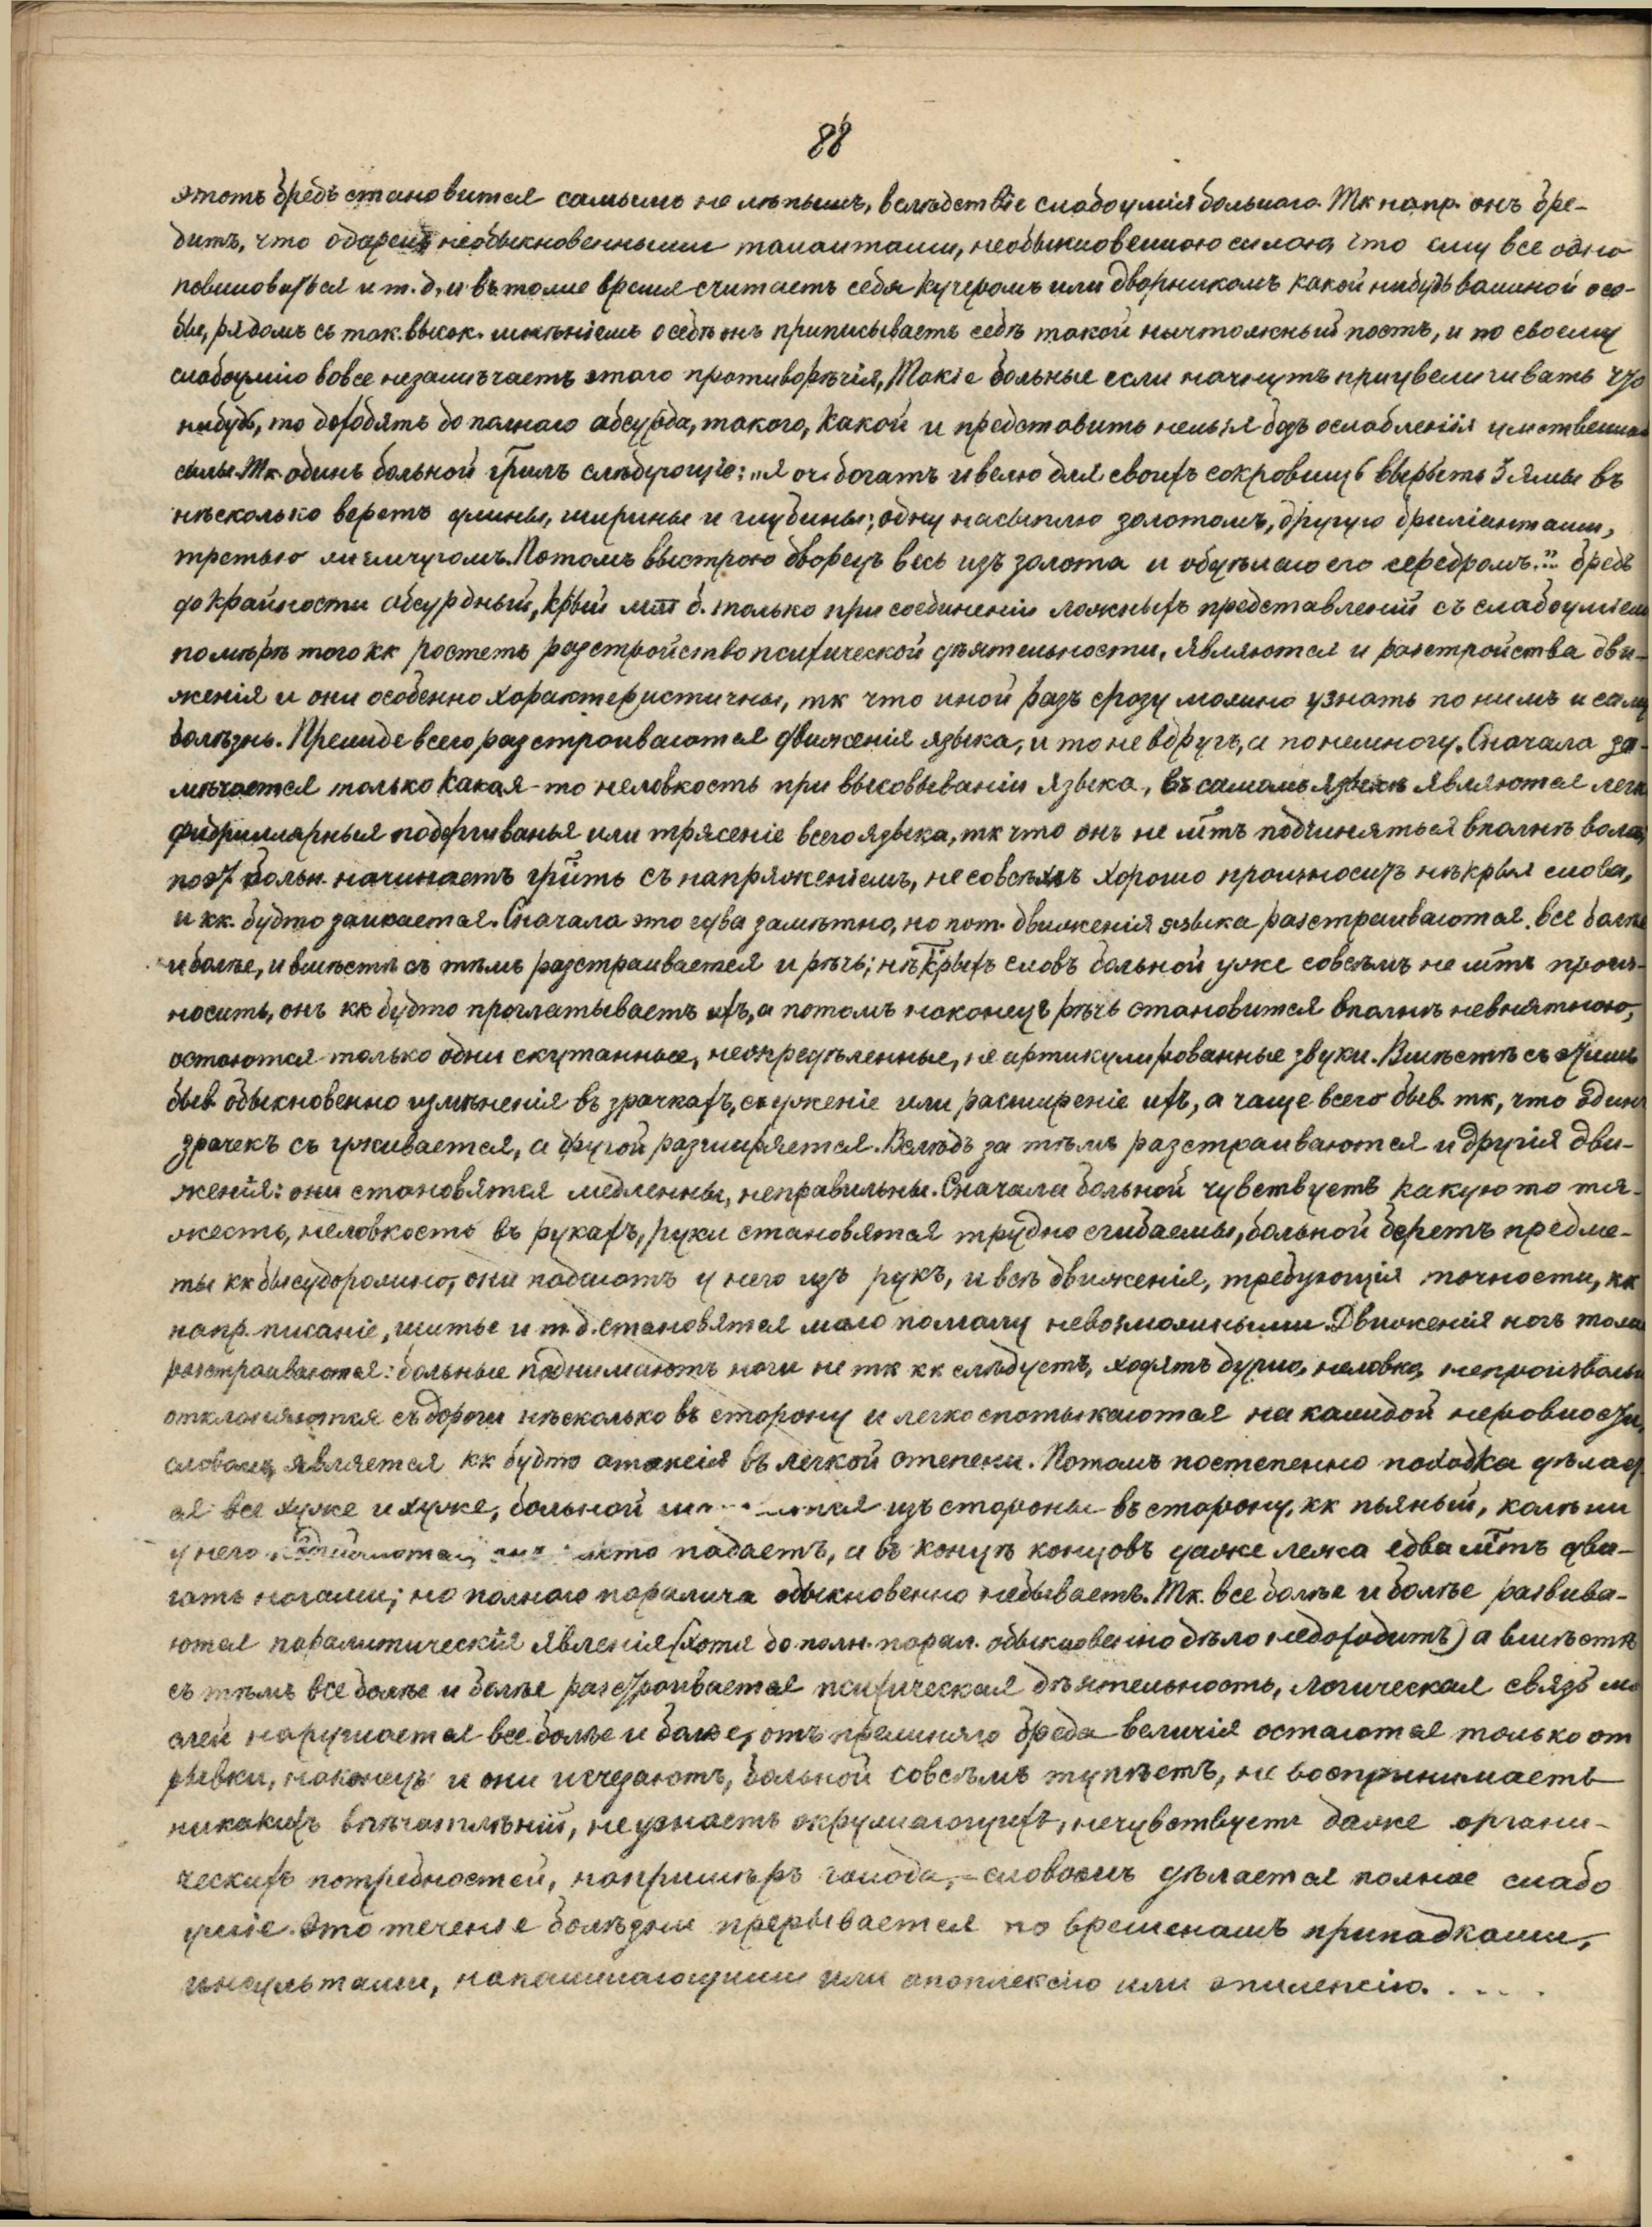 88
этотъ бредъ становится самымъ не лѣпымъ, вслѣдствіе слабоумія больнаго. Тк напр. онъ бре-
дитъ, что одаренъ необыкновенными талантами, необыкновенною силою, что ему все одно
повиноваться и т. д., и въ тоже время считаетъ себя кучеромъ или дворникомъ какой нибудь важной осо-
бы, рядомъ съ так. высок. мнѣніемъ о себѣ онъ приписываетъ себѣ такой ничтожный постъ, и по своему
слабоумію вовсе незамѣчаетъ этого противорѣчія, Такіе больные если начнутъ приувеличивать что
нибудь, то доходятъ до полнаго абсурда, такого, какой и представить нельзя безъ ослабленія умственной
силы. Тк. одинъ больной грилъ слѣдующіе: „я оч. богатъ и велю для своихъ сокровищъ вырыть 3 ямы въ
нѣсколько верстъ длины, ширины и глубины; одну насыплю золотомъ, другую бриліантами,
третью жемчугомъ. Потомъ выстрою дворецъ весь изъ золота и обдѣлаю его серебромъ." бредъ
до крайности абсурдный, крый мтъ б. только при соединеніи ложныхъ представленій съ слабоуміемъ
по мѣрѣ того кк ростетъ разстройство психической дѣятельности, являются и разстройства дви-
женія и они особенно характеристичны, тк что иной разъ сразу можно узнать по нимъ и саму
болѣзнь. Прежде всего разстроиваются движенія языка, и то не вдругъ, а понемногу. Сначала за-
мѣчается только какая-то неловкость при высовываніи языка, въ самомъ языкѣ являются легк
фибриллярныя подергиванья или трясеніе всего языка, тк что онъ не мтъ подчиняться вполнѣ волѣ,
поэт больн. начинаетъ грить съ напряженіемъ, не совсѣмъ хорошо произноситъ нѣкрыя слова,
и кк. будто заикается. Сначала это едва замѣтно, но пот. движенія языка разстраиваются все болѣе
и болѣе, и вмѣстѣ съ тѣмъ разстраивается и рѣчь; нѣкрыхъ словъ больной уже совсѣмъ не мтъ произ-
носить, онъ кк будто проглатываетъ ихъ, а потомъ наконецъ рѣчь становится вполнѣ невнятною,
остаются только одни скутанные, неопредѣленные, не артикулированные звуки. Вмѣстѣ съ этимъ
быв. обыкновенно измѣненія въ зрачкахъ, съуженіе или расширеніе ихъ, а чаще всего быв. тк, что одинъ
зрачекъ съ уживается, а другой разширяется. Вслѣдъ за тѣмъ разстраиваются и другія дви-
женія: они становятся медленны, неправильны. Сначала больной чувствуетъ какую то тя-
жесть, неловкость въ рукахъ, руки становятся трудно сгибаемы, больной беретъ предме-
ты кк бы судорожно, они падаютъ у него изъ рукъ, и всѣ движенія, требующія точности, кк
напр. писаніе, шитье и т. д. становятся мало помалу невозможными. Движенія ногъ тоже
разстраиваются: больные поднимаютъ ноги не тк кк слѣдуетъ, ходятъ дурно, неловко, непроизвольн
отклоняются съ дороги нѣсколько въ сторону и легко спотыкаются на каждой неровности,
словомъ, является кк будто атаксія въ легкой степени. Потомъ постепенно походка дѣлает
ся все хуже и хуже, больной изъ стороны въ сторону, кк пьяный, колѣни
у него падаетъ, а въ концѣ концовъ даже лежа едва мтъ дви-
гать ногами; но полного паралича обыкновенно небываетъ. Тк. все болѣе и болѣе развива-
ются паралитическія явленія (хотя до полн. парал. обыкновенно дѣло недоходитъ) а вмѣстѣ
съ тѣмъ все болѣе и болѣе разстроивается психическая дѣятельность, логическая связь мы
слей нарушается все болѣе и болѣе, отъ прежняго бреда величія остаются только от
рывки, наконецъ и они исчезаютъ, больной совсѣмъ тупѣетъ, не воспринимаетъ
никакихъ впѣчатлѣній, не узнаетъ окружающихъ, нечувствуетъ даже органи-
ческихъ потребностей, напримѣръ голода, - словомъ дѣлается полное слабо
уміе. Это теченіе болѣзни прерывается по временамъ припадками,
инсультами, напоминающими или апоплексію или эпилепсію. . . . .